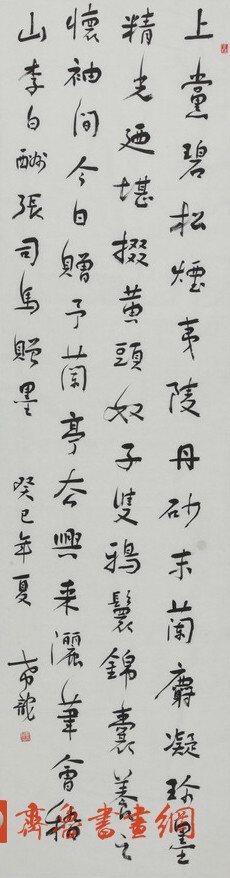 上黨碧松煙夷陵丹砂末蘭麝凝珍墨
精光廼堪掇黃頭奴子雙鴉鬟錦囊養之
懷袖間今日贈予蘭亭去興來灑筆會稽
山李白酬張司馬贈墨 癸巳年夏
齊魯書畫網